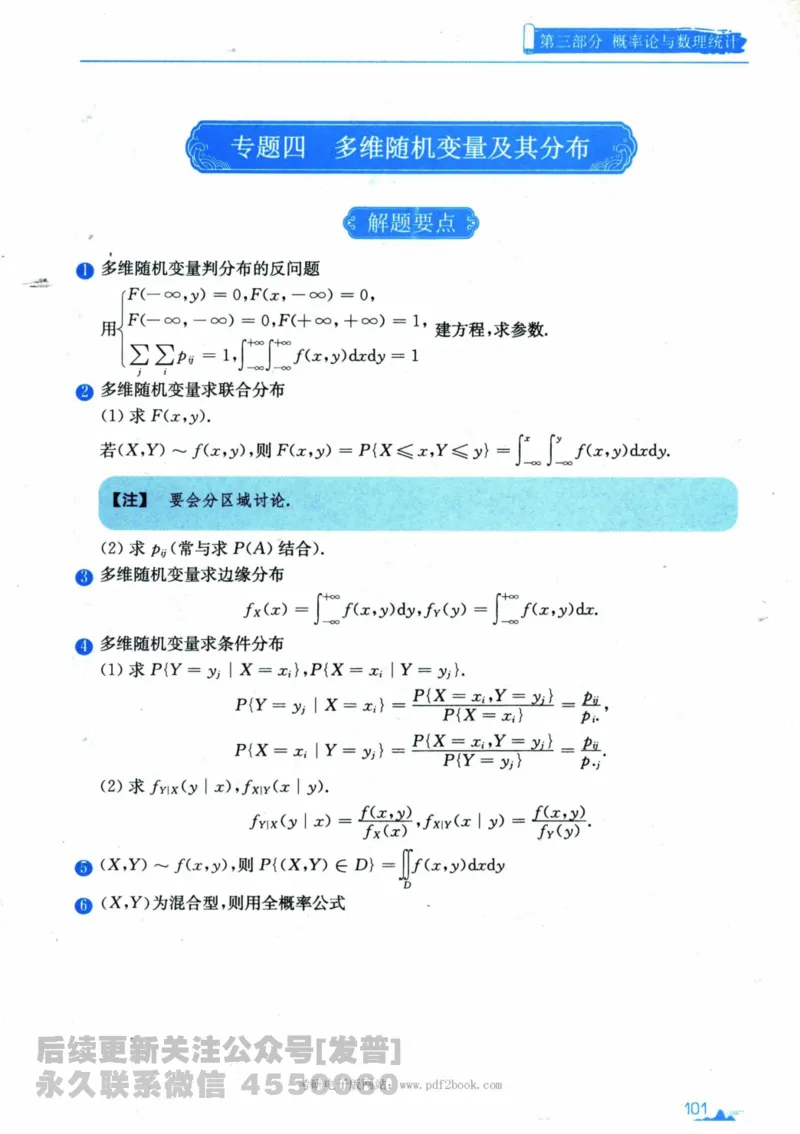 第三部分 概率论与数理统计
专题四 多维随机变量及其分布
解题要点
❶ 多维随机变量判分布的反问题
用{F(-∞,y) = 0,F(x,-∞) = 0,
F(-∞,-∞) = 0,F(+∞,+∞) = 1,
∑_j ∑_i p_{ij} = 1,∫_{-∞}^{+∞}∫_{-∞}^{+∞} f(x,y)dxdy = 1
建方程,求参数.
❷ 多维随机变量求联合分布
(1) 求 F(x,y).
若(X,Y) ~ f(x,y),则 F(x,y) = P{X ⩽ x,Y ⩽ y} = ∫_{-∞}^{x} ∫_{-∞}^{y} f(x,y)dxdy.
【注】 要会分区域讨论.
(2) 求 p_{ij}(常与求 P(A) 结合).
❸ 多维随机变量求边缘分布
f_X(x) = ∫_{-∞}^{+∞} f(x,y)dy,f_Y(y) = ∫_{-∞}^{+∞} f(x,y)dx.
❹ 多维随机变量求条件分布
(1) 求 P{Y = y_j | X = x_i},P{X = x_i | Y = y_j}.
P{Y = y_j | X = x_i} = P{X = x_i,Y = y_j} / P{X = x_i} = p_{ij} / p_{i·},
P{X = x_i | Y = y_j} = P{X = x_i,Y = y_j} / P{Y = y_j} = p_{ij} / p_{·j}.
(2) 求 f_{Y|X}(y | x),f_{X|Y}(x | y).
f_{Y|X}(y | x) = f(x,y) / f_X(x),f_{X|Y}(x | y) = f(x,y) / f_Y(y).
❺ (X,Y) ~ f(x,y),则 P{(X,Y) ∈ D} = ∬_D f(x,y)dxdy
❻ (X,Y)为混合型,则用全概率公式
后续更新关注公众号[发普]
永久联系微信 4550060
www.pdf2book.com
101